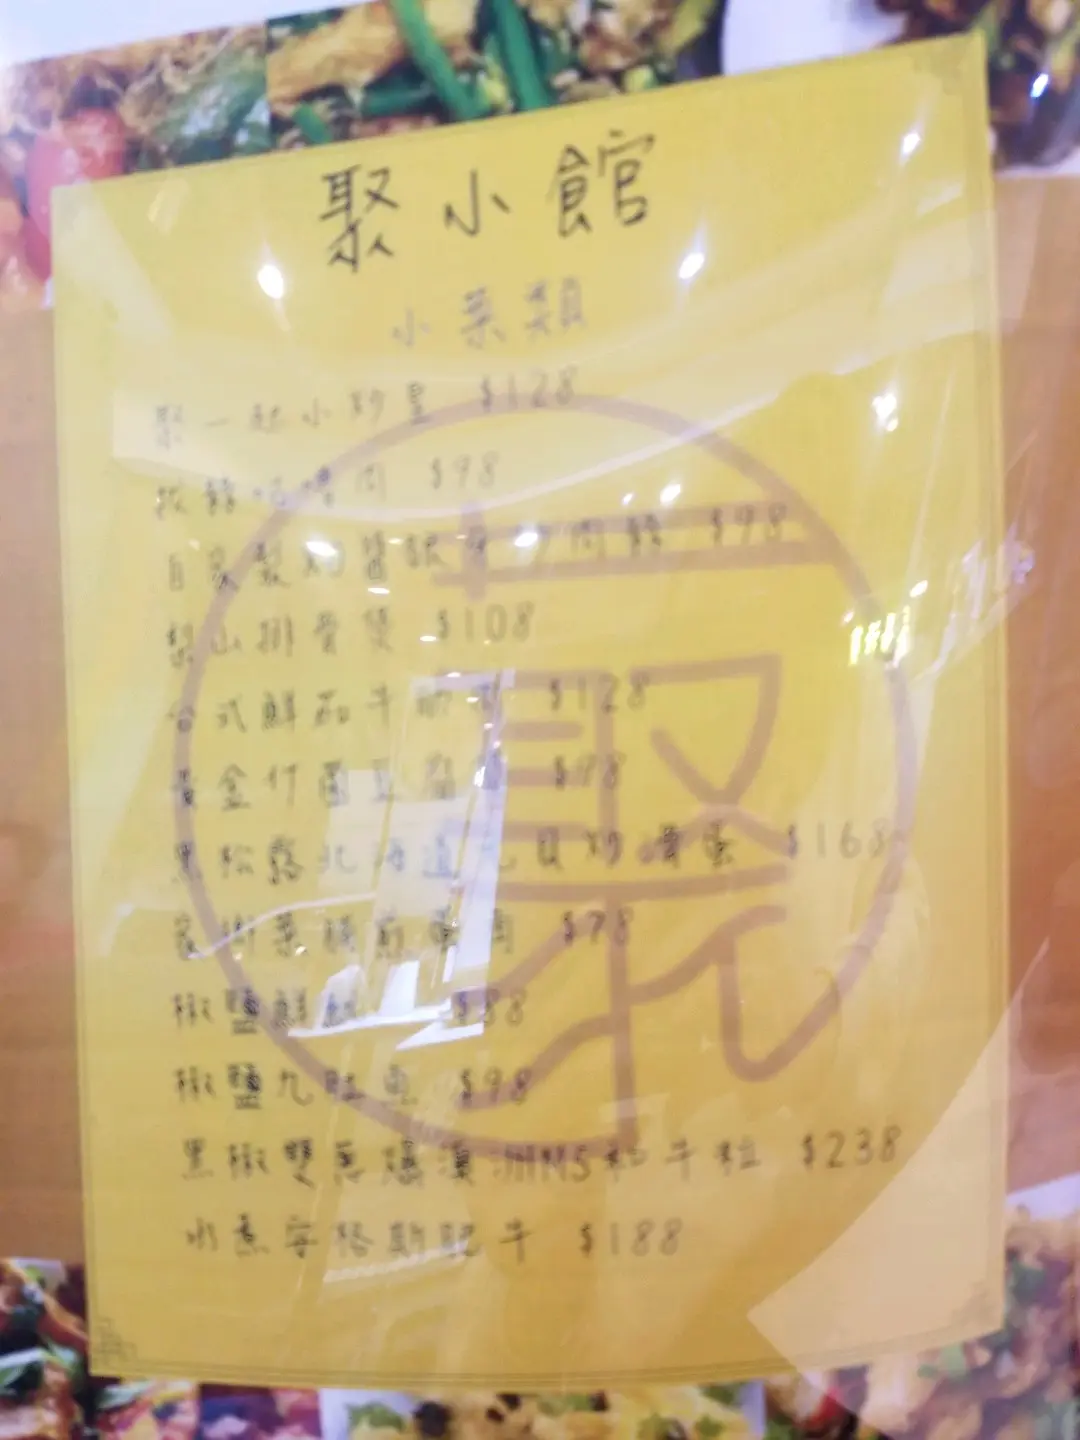 聚小館
小菜類
聚一起小炒皇 $128
肉 $98
自家製 醬 肉 $98
梨山排骨煲 $108
台式鮮茄牛 $128
黃金竹 豆腐 $98
黑松露北海道 炒滑蛋 $168
家鄉 煎 $78
椒鹽鮮 $88
椒鹽九肚魚 $98
黑椒雙蔥爆澳洲M5和牛粒 $238
水煮安格斯肥牛 $188
聚